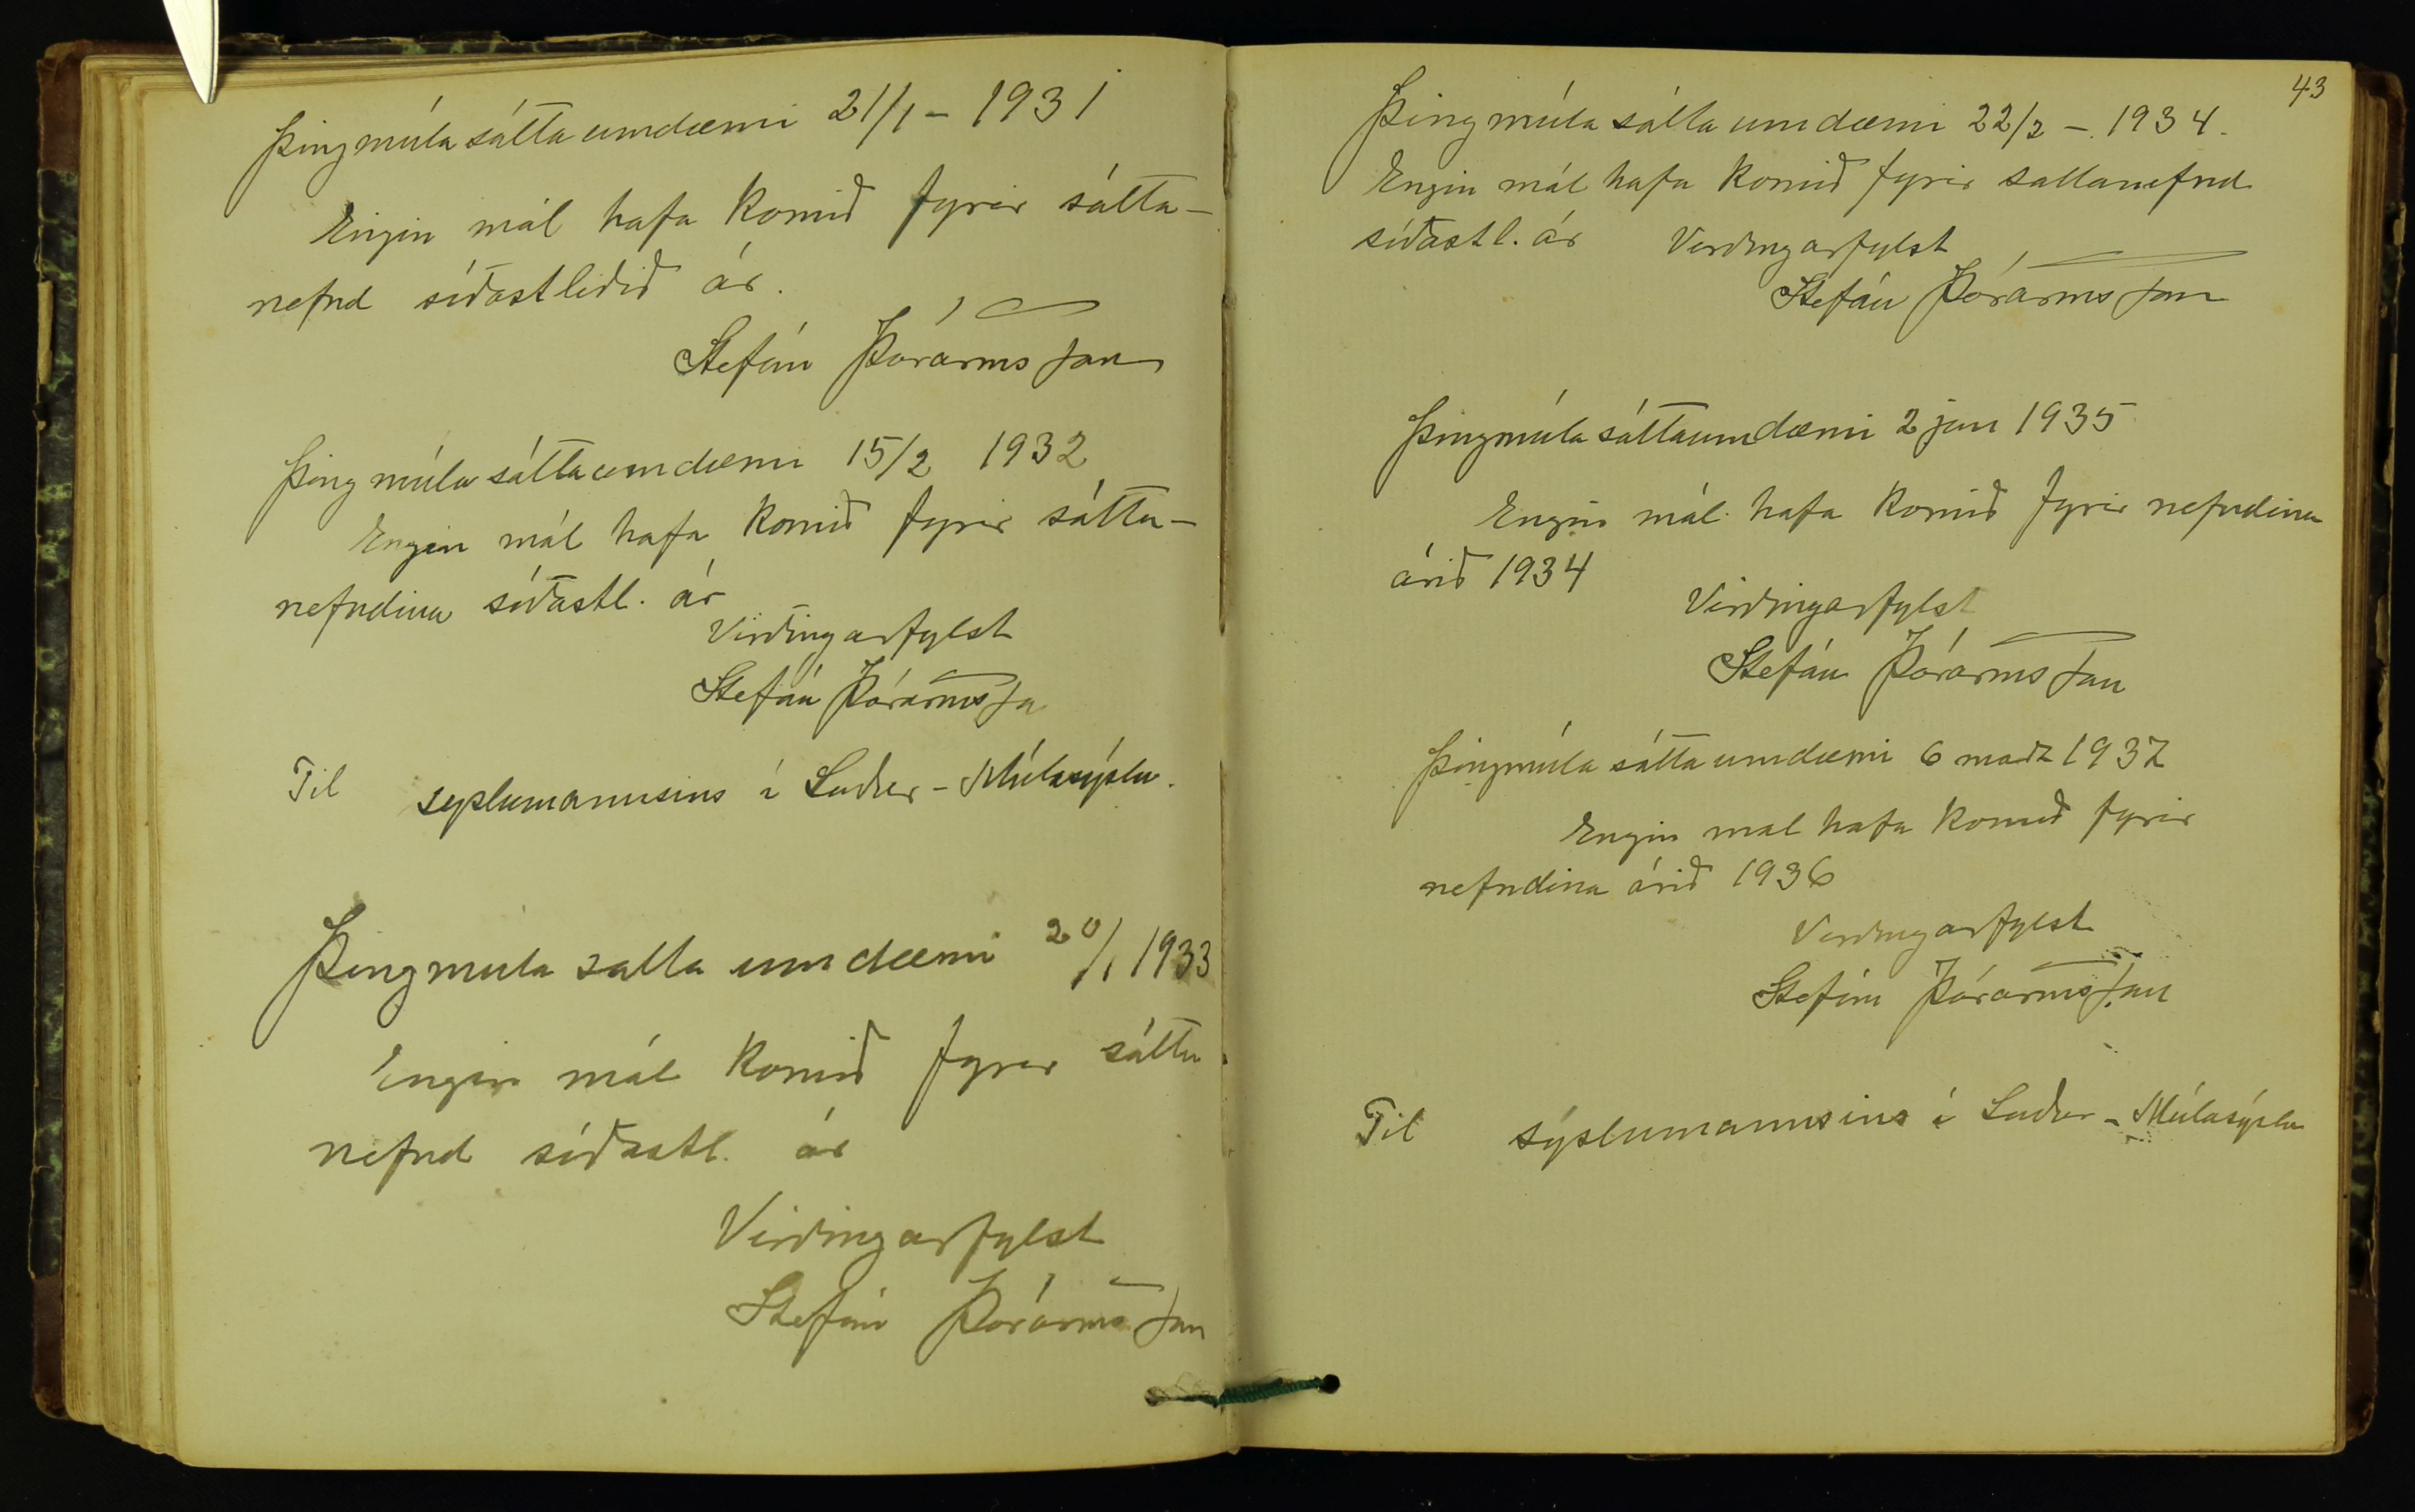 Þingmúla sáttaumdæmi 21/1 - 1931
Engin mál hafa komið fyrir sátta-
nefnd síðastliðið ár.
Stefán Þórarinsson
Þingmúla sáttaumdæmi 15/2 1932
Engin mál hafa komið fyrir sátta-
nefndina síðastl. ár
Virðingarfylst
Stefán Þórarinsson
Til sýslumannsins í Suður-Múlasýslu.
Þingmúla satta umdæmi 20/1 1933
Engin mál komið fyrir sátta
nefnd síðastl. ár
Virðingarfylst
Stefán Þórarinsson
43
Þingmúla sátta umdæmi 22/2 - 1934.
Engin mál hafa komið fyrir sattanefnd
síðastl. ár Virðingarfylst
Stefán Þórarinsson
Þingmúla sáttaumdæmi 2 jan 1935
Engin mál hafa komið fyrir nefndina
árið 1934
Virðingarfylst
Stefán Þórarinsson
Þingmúla sáttaumdæmi 6 marz 1937
Engin mal hafa komið fyrir
nefndina árið 1936
Virðingarfylst
Stefán Þórarinsson
Til sýslumannsins í Suður-Múlasýslu